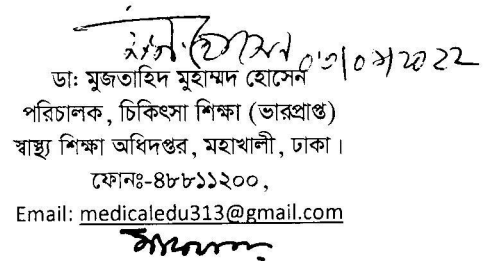 ডাঃ মুজতাহিদ মুহাম্মদ হোসেন
পরিচালক, চিকিৎসা শিক্ষা (ভারপ্রাপ্ত)
স্বাস্থ্য শিক্ষা অধিদপ্তর, মহাখালী, ঢাকা।
ফোনঃ-৪৮৮১১২০০,
Email: medicaledu313@gmail.com